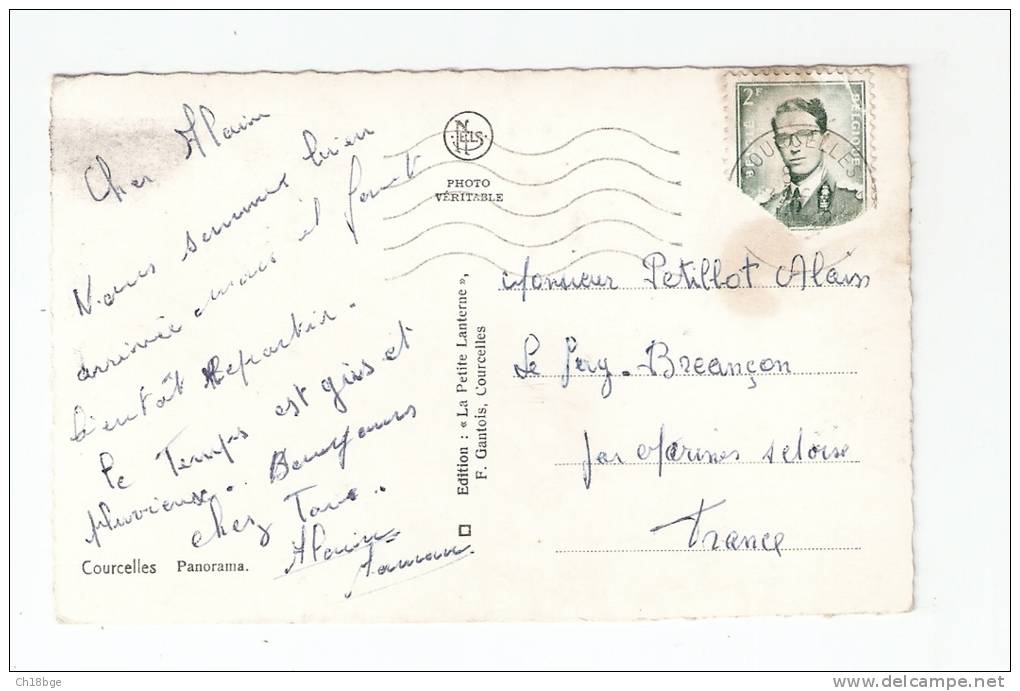 Cher Alain
Nous sommes bien
arrivée mais il faut
bientôt Repartir.
le Temps est gris et
pluvieux. Bonjours
chez Tous.
Alain
Courcelles Panorama.
NELS
PHOTO
VÉRITABLE
Edition : « La Petite Lanterne »,
F. Gantois, Courcelles
2F
BELGIE BELGIQUE
COURCELLES
Monsieur Petillot Alain
Le Jury-Breançon
par Marines seloise
France
Ch18bge